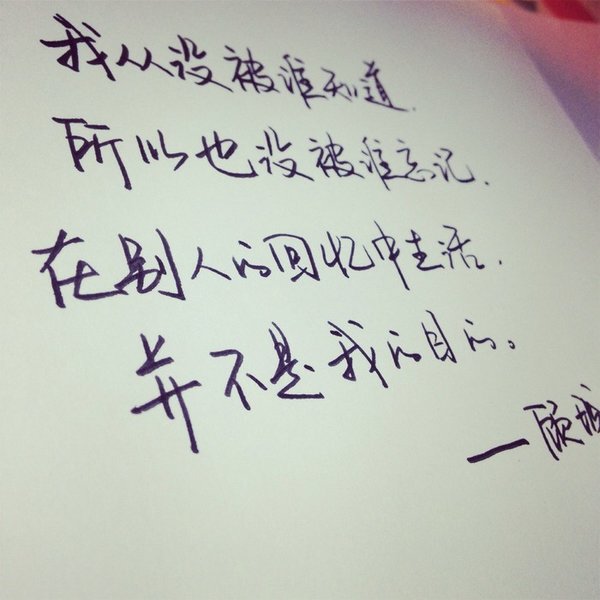 我从没被谁知道.
所以也没被谁忘记.
在别人的回忆中生活.
并不是我的目的。
—顾城